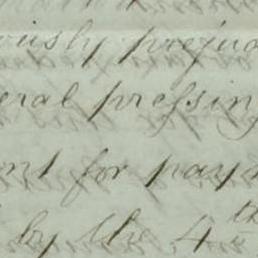 ously prejud
eral pressing
ent for paym
by the 4th